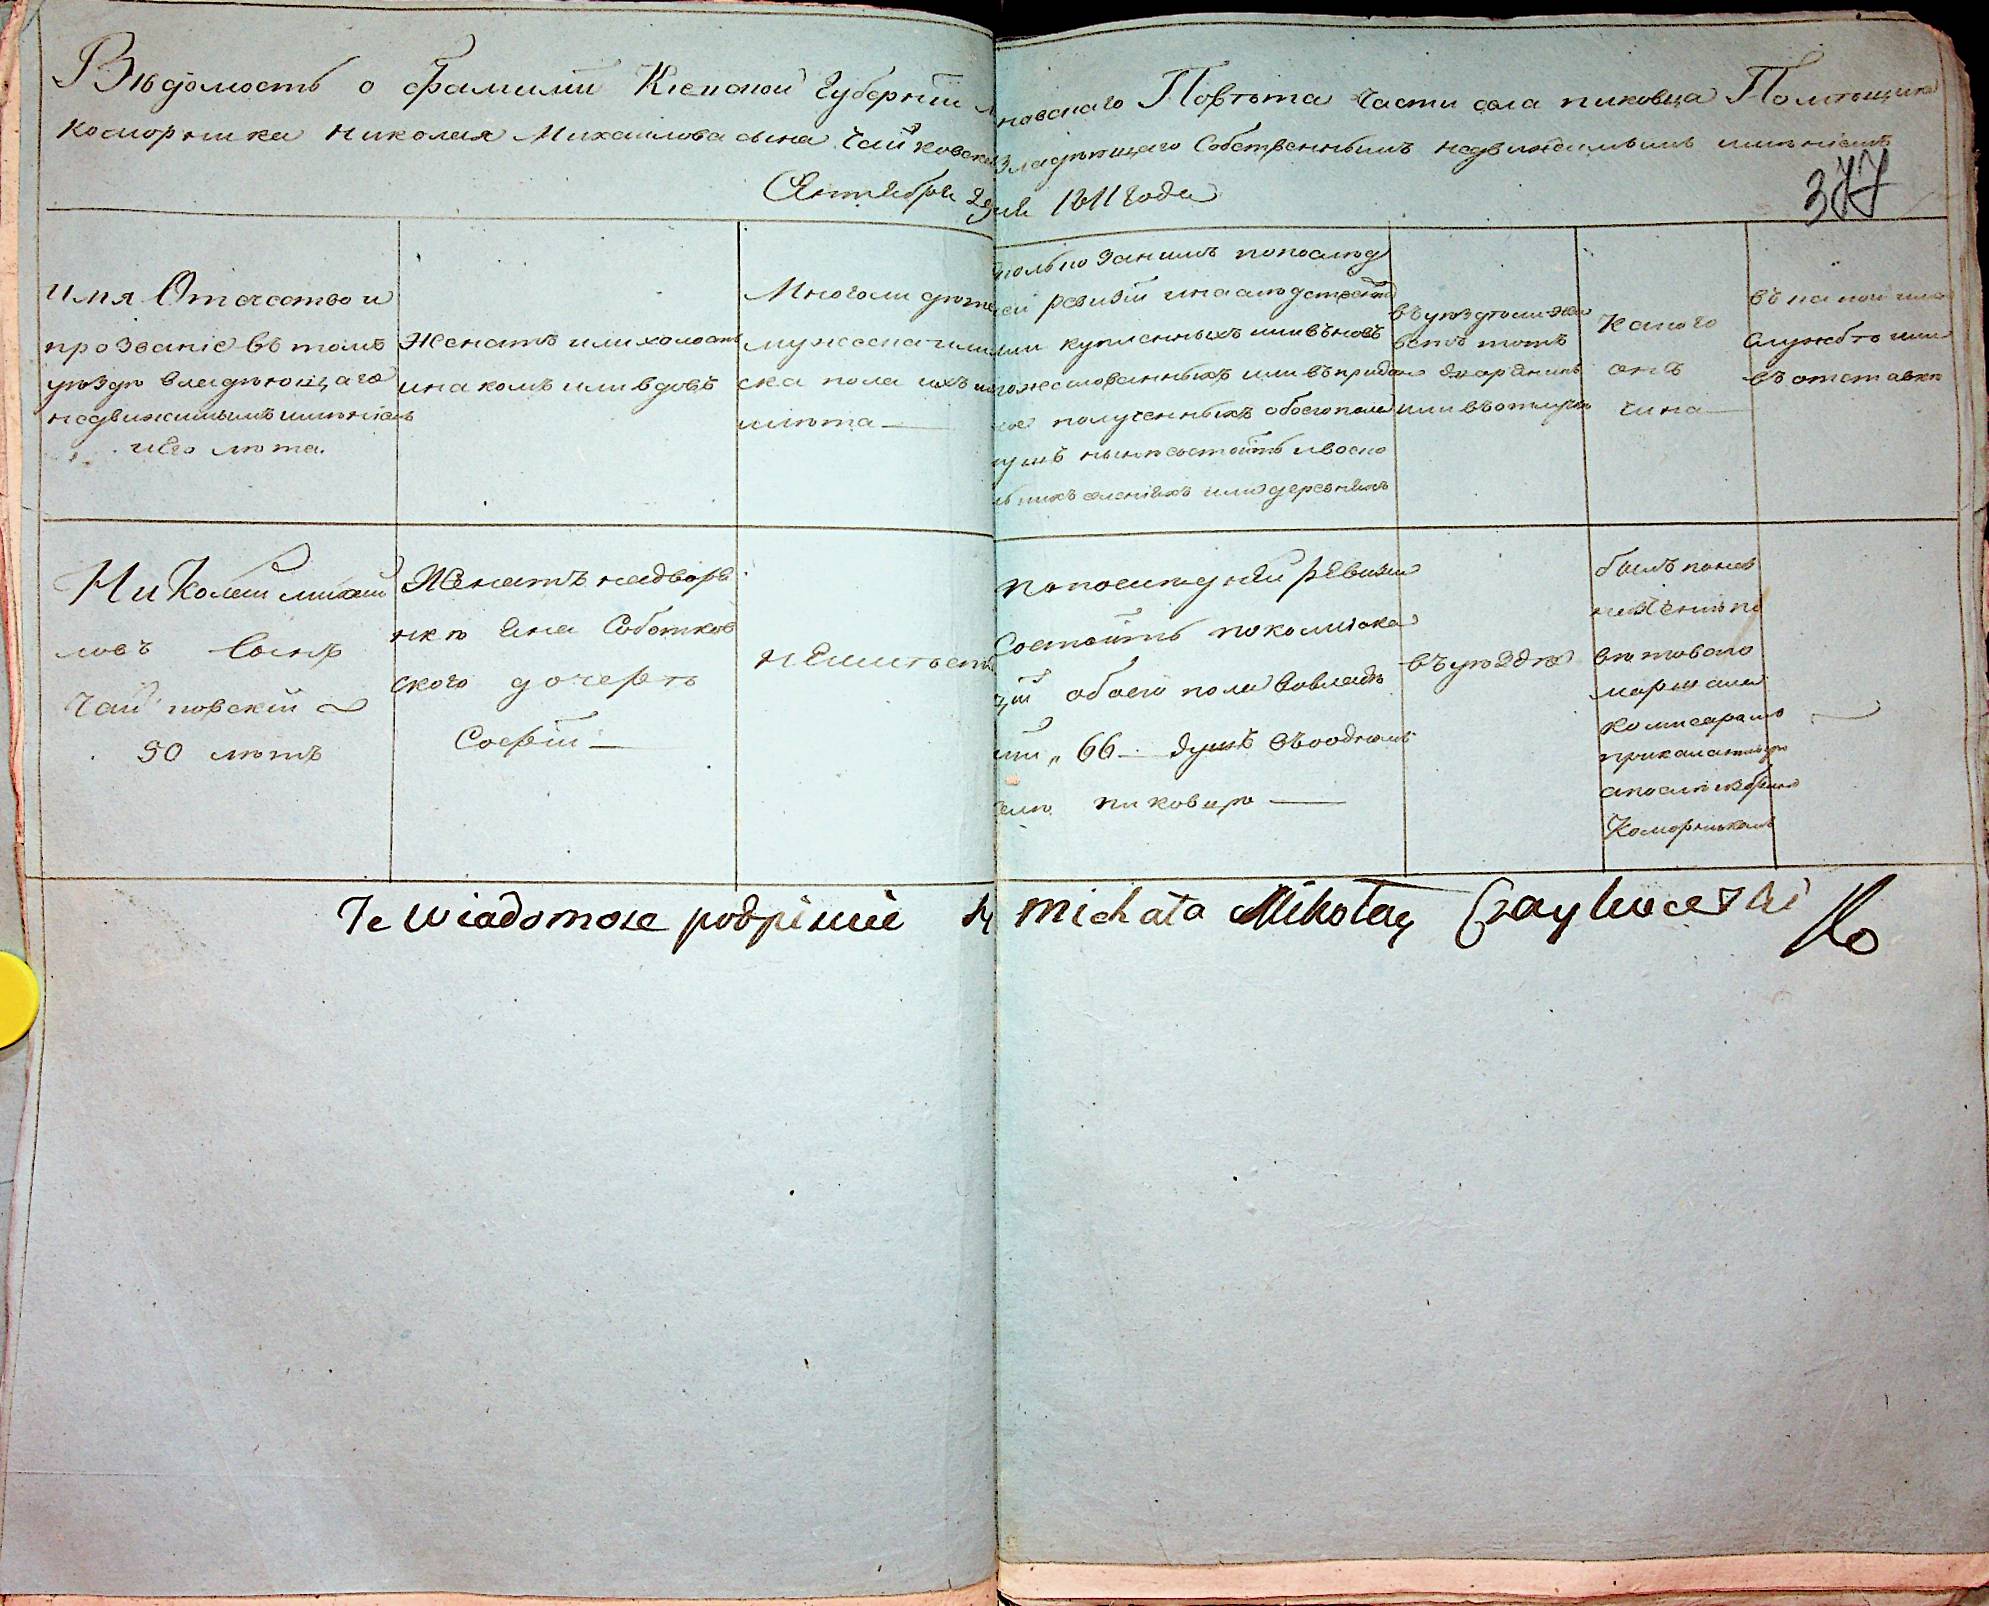 Вѣдомость о фамилии Кіевской Губернїи повскаго Повѣта части села пиковца Помѣщика
Коморника Николая Михаилова сына Чайковскаго владѣющаго Собственнымъ недвижимымъ имѣніемъ
Сентября 29 дня 1811 года
377
имя Отечество и
прозваніе въ томъ
уѣздѣ владѣющаго
недвижимымъ имѣніемъ
и Его лѣта.
Женатъ или холостъ
и на комъ или вдовъ
Многоли дѣтей
мужеска и жен
ска пола и ихъ
лѣта
сколько за нимъ по послѣд
ней ревизїи и наслѣдственныхъ
или купленныхъ или вновь
пожалованныхъ или въ прида
ное полученныхъ обоего пола
душъ нынѣ состоитъ и въ ско
лькихъ селеніяхъ или деревняхъ
въ уѣздѣ ли жи
ветъ тотъ
дворянинъ
или въ отлучке
Какого
онъ
чина
въ какой или
службѣ или
въ отставке
Николай михай
ловъ Сынъ
Чайковскїй
50 лѣтъ
Женатъ на дворя
нкѣ Яна Соботков
ского дочерѣ
Софїи
неимѣетъ
по последней ревизии
Состоитъ по комиса
цїи обоего пола во владѣ
нїи 66 душъ въ одномъ
селѣ пиковцѣ
въ уѣздѣ
былъ повѣ
вѣтоваго
маршала
комисаромъ
Коморникомъ
Te wiadomosc podpisuie Sy Michała Mikołay Czaykowski